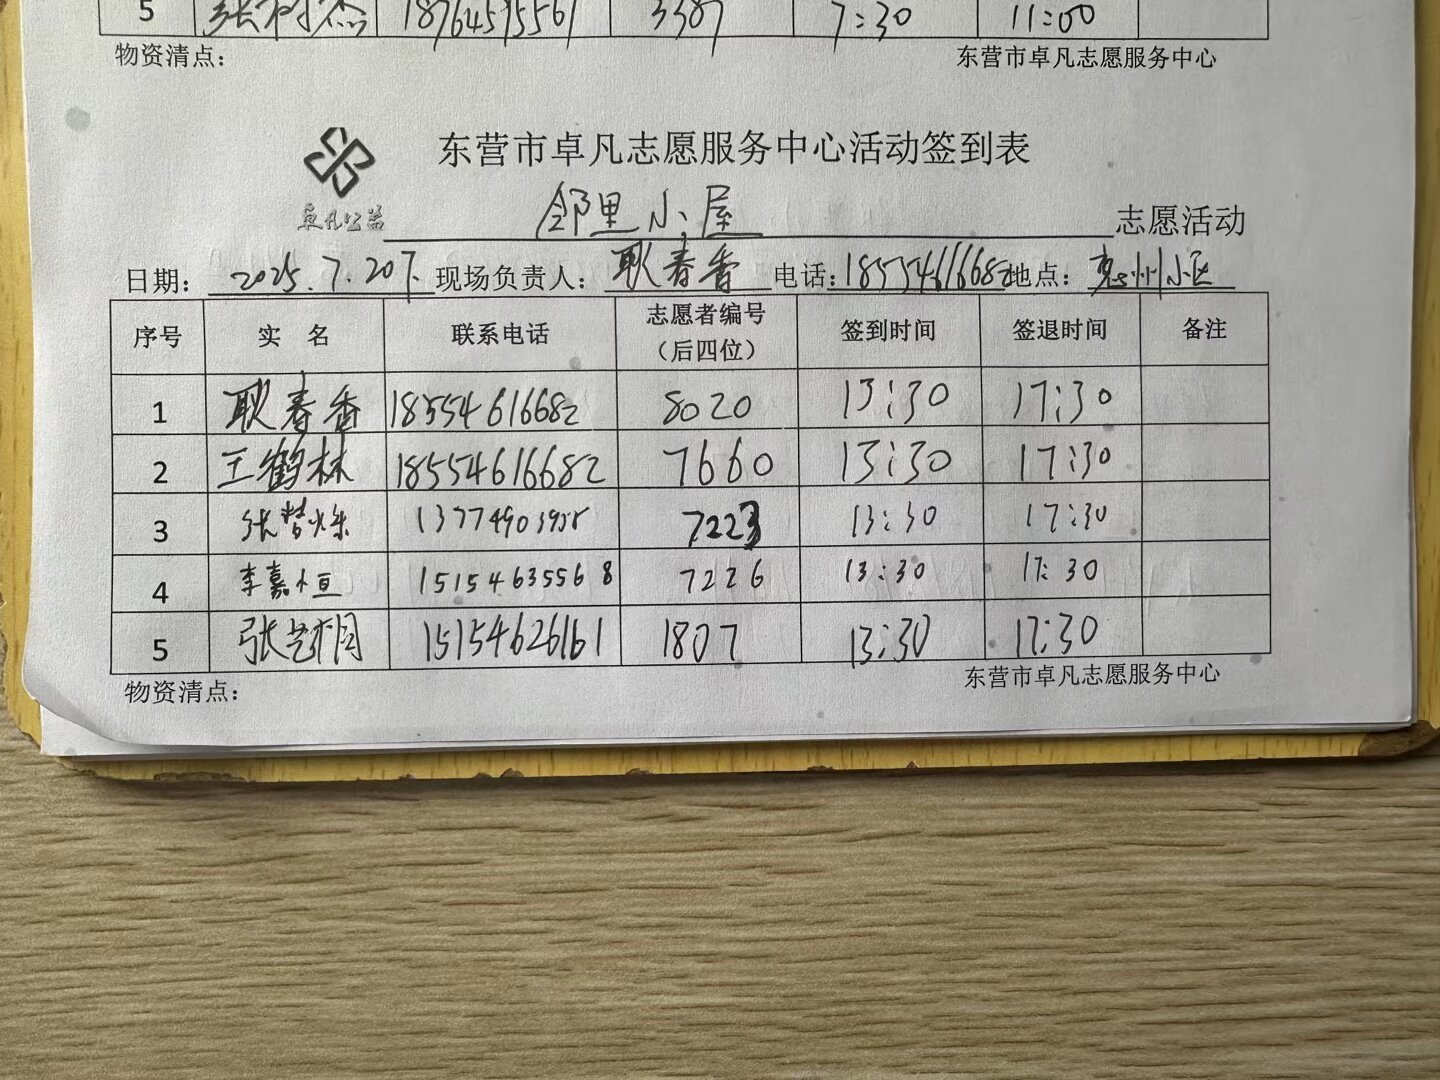 5 张树杰 18764595561 3387 7:30 11:00
物资清点: 东营市卓凡志愿服务中心
东营市卓凡志愿服务中心活动签到表
卓凡公益 邻里小屋 志愿活动
日期: 2025.7.20下 现场负责人: 耿春香 电话: 18554616682 地点: 惠州小区
序号 实 名 联系电话 志愿者编号 (后四位) 签到时间 签退时间 备注
1 耿春香 18554616682 8020 13:30 17:30
2 王鹤林 18554616682 7660 13:30 17:30
3 7223 13:30 17:30
4 李嘉恒 15154635568 7226 13:30 17:30
5 张艺桐 15154626161 1807 13:30 17:30
物资清点: 东营市卓凡志愿服务中心